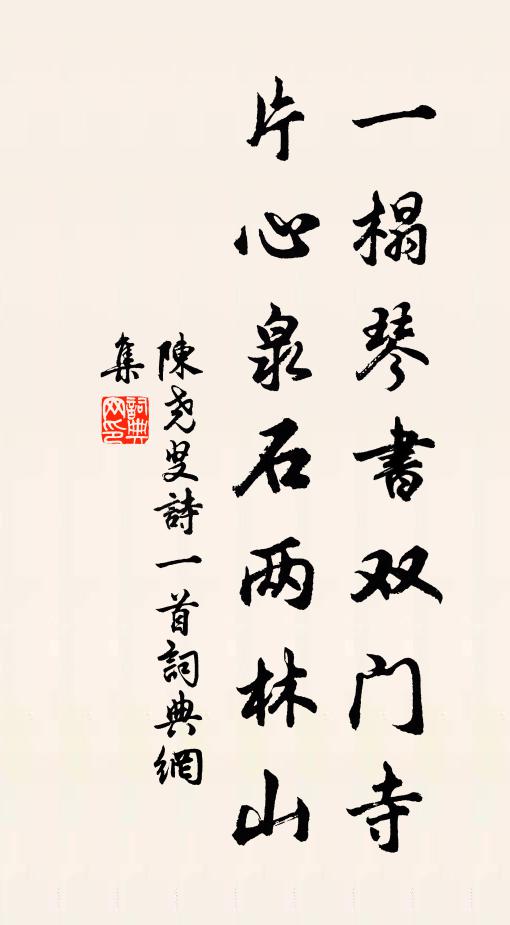 一榻琴書双门寺
片心泉石两林山
陳尧叟詩一首詞典網
集
詞典网印